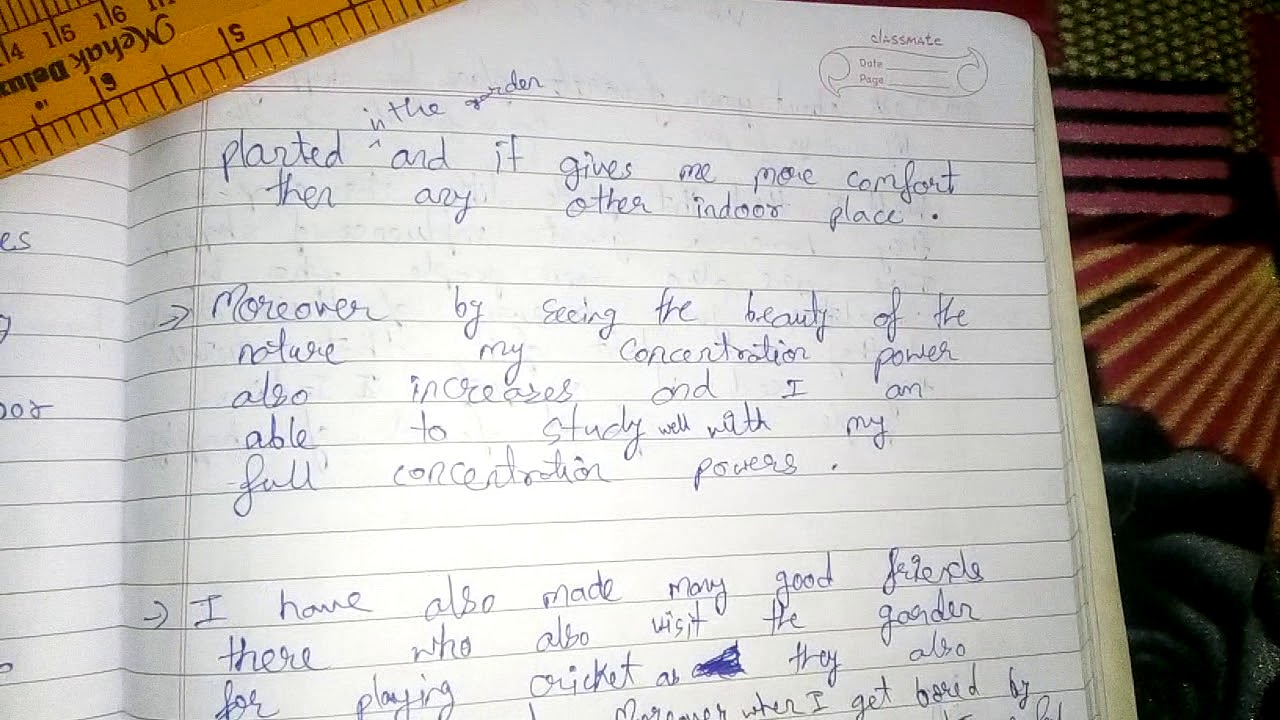 4 15 16
Mehak Delux
5 6
classmate
Date
Page
in the garden
planted ^ and it gives me more comfort
then any other indoor place.
es
→ Moreover by seeing the beauty of the
nature my concentration power
also increases and I am
oor
able to study well with my
full concentration powers.
→ I have also made many good friends
there who also visit the garden
for playing cricket as they also
Moreover when I get bored by